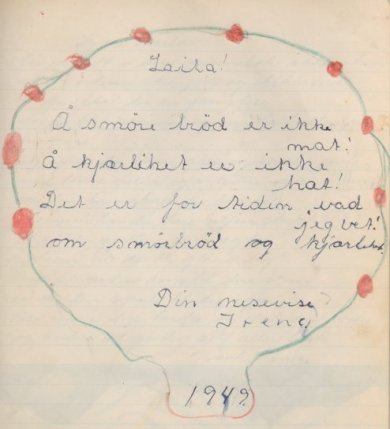 Laila!
Å smöre bröd er ikke
mat!
Å kjærlihet er ikke
hat!
Det er for tiden vad
jeg vet!
om smörbröd og kjærlihet
Din nesevise
Irene
1949